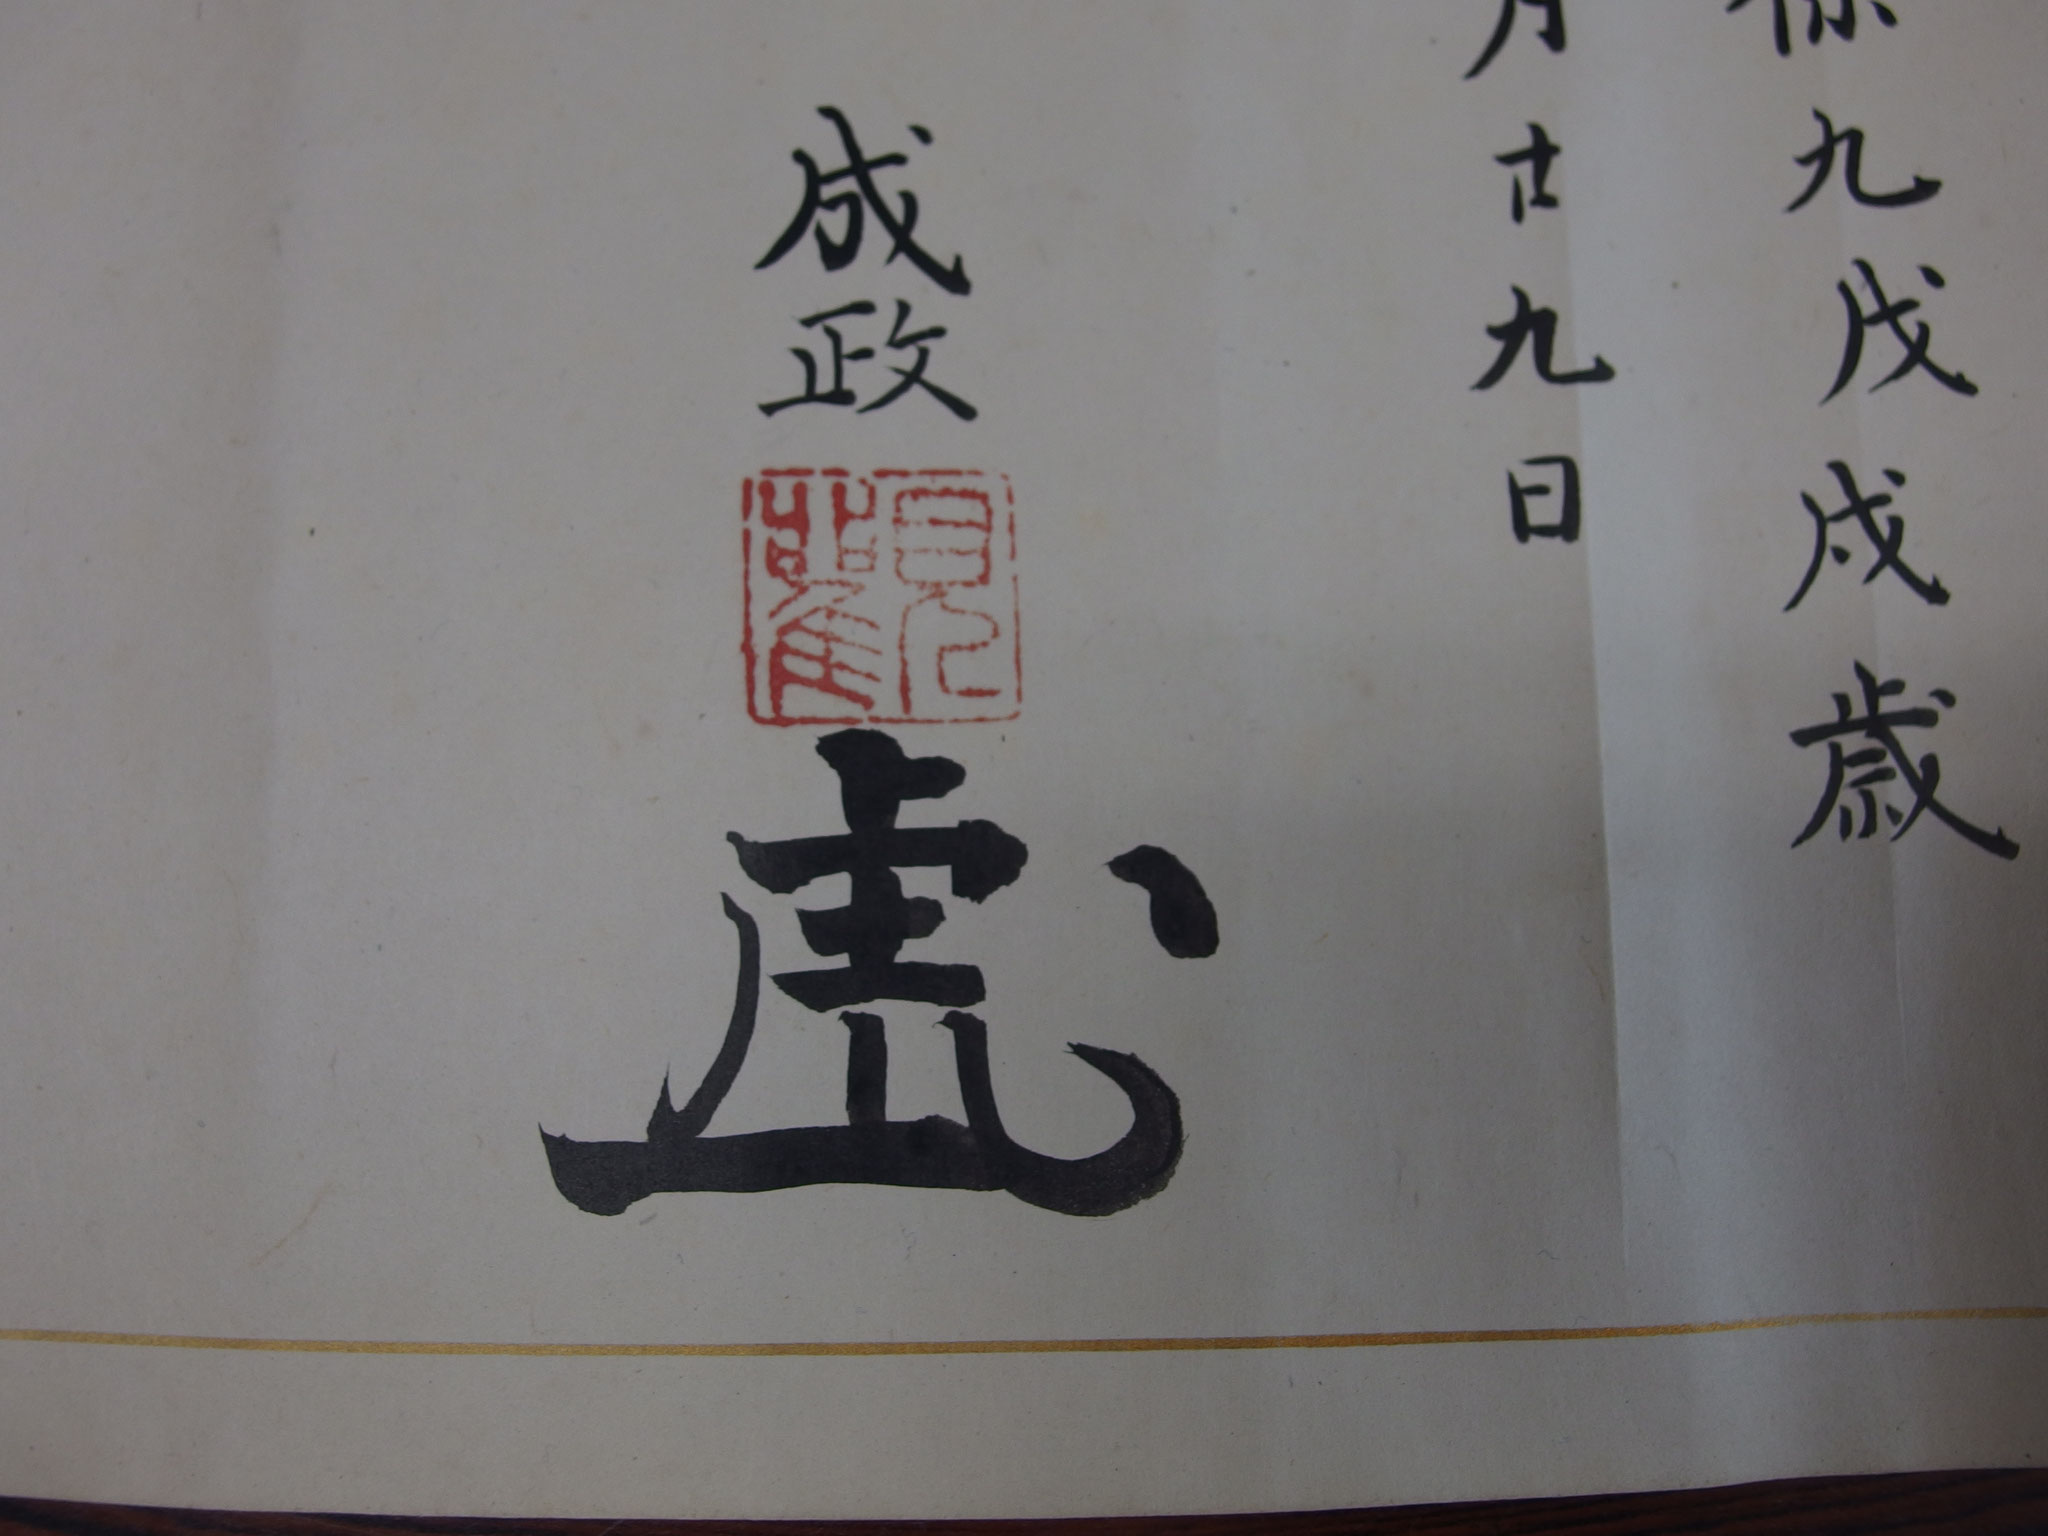 保九戊戌歳
月廿九日
成政
觀